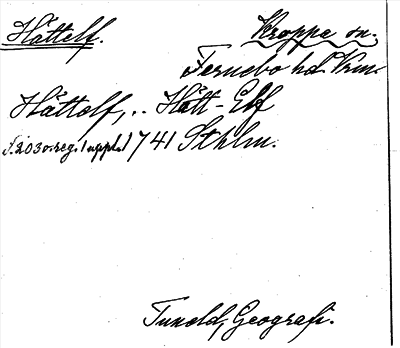 Hättelf. Kroppa sn.
Fernebo hd Vrm.
Hättälf, .. Hätt-Elf
s. 203 o. reg. (uppl.) 1741 Sthlm.
Tuneld, Geografi.